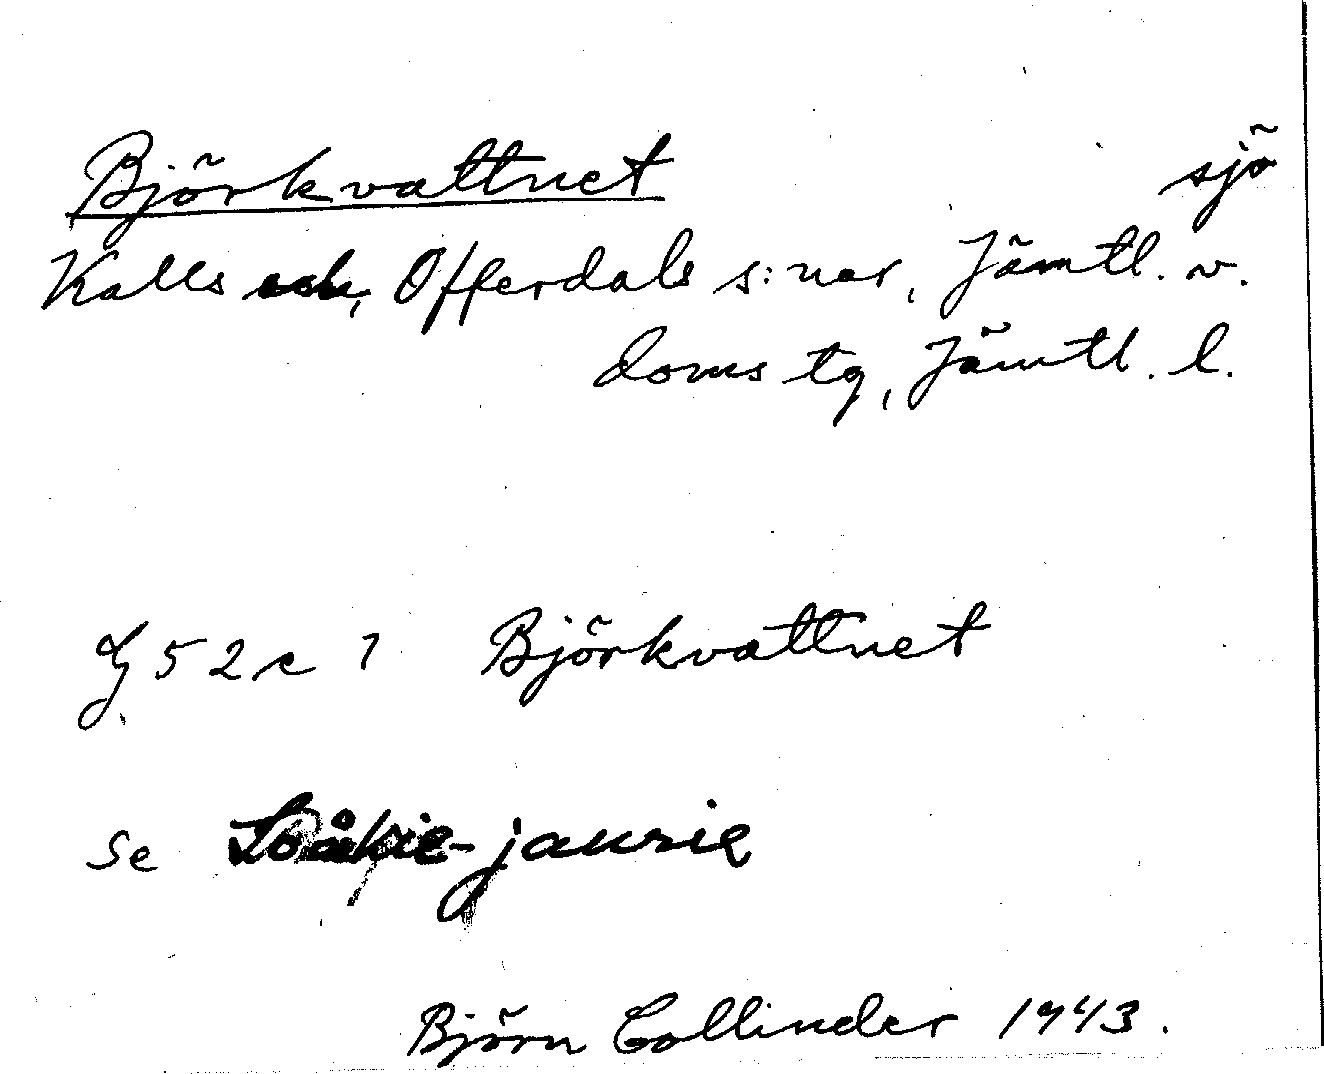 Björkvattnet sjö
Kalls och, Offerdals s:nar, Jämtl. v.
doms tg, Jämtl. l.
G 52 c 1 Björkvattnet
Se -jaurie
Björn Collinder 1943.